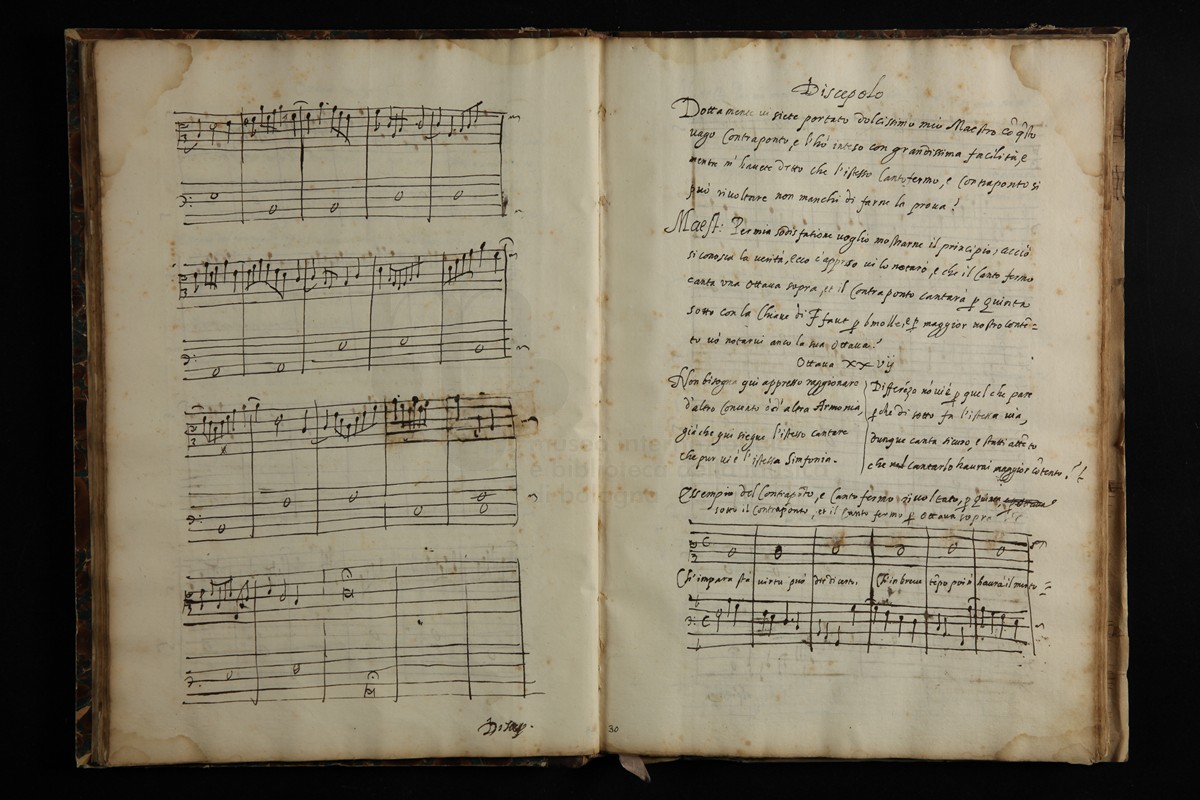 Disce.
30
Discepolo
Dottamente vi siete portato dolcissimo mio Maestro cō q̄sto
vago Contraponto, e l'hò inteso con grandissima facilità, e
mentre m'havete detto che l'istesso Canto fermo, e Contraponto si
può rivoltare non manchi di farne la prova?
Maest: Per mia sodisfatione voglio mostrarne il principio, acciò
si conosca la verità, ecco c'appresso vi lo notarò, e che il Canto fermo
canta una Ottava sopra, et il Contraponto cantarà p Quinta
sotto con la Chiave di F faut p bmolle, e p maggior nostro contē=
to vò notarvi anco la sua Ottava?
Ottava XXVij
Non bisogna qui appresso raggionare
d'altro Concento ò d'altra Armonia,
già che quì siegue l'istesso cantare
che pur vi è l'istessa Simfonia.
Differēza nō vi è p quel che pare
p che di sotto fa l'istessa via,
dunque canta sicuro, e statti attēto
che nel cantarlo haurai maggior cōtento?
Essempio del Contrapōto, e Canto fermo rivoltato, p Quinta
sotto il Contraponto, et il Canto fermo p Ottava sopra
Chi impara stà virtù può dir di certo. Ch'in breve tēpo poi n'haurà il merto
museo inte
e biblioteca della